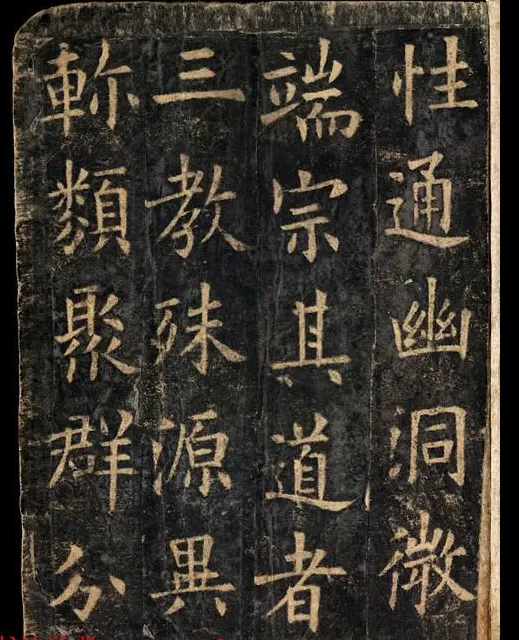 性通幽洞微
端宗其道者
三教殊源異
軫類聚群分